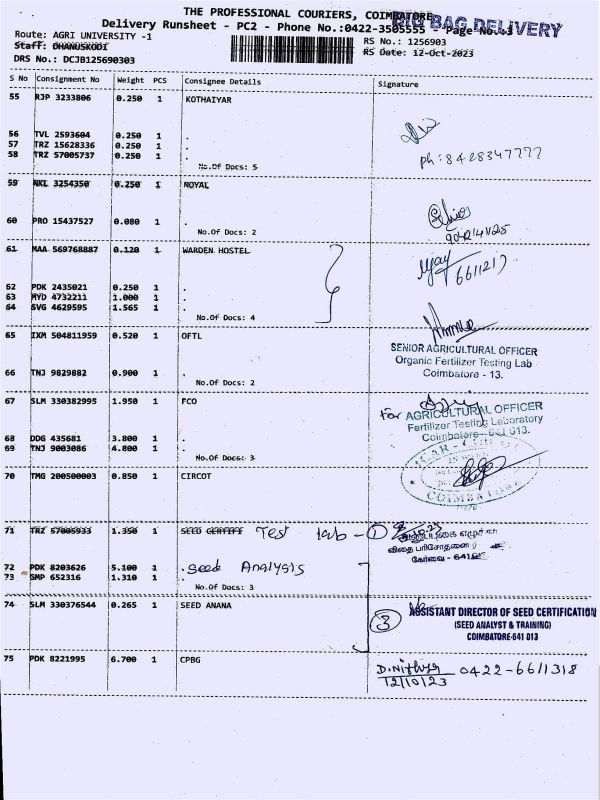 THE PROFESSIONAL COURIERS, COIMBATORE
BIG BAG DELIVERY
Delivery Runsheet - PC2 - Phone No.:0422-3505555 - Page No.:3
Route: AGRI UNIVERSITY -1
RS No.: 1256903
Staff: DHANUSKODI
RS Date: 12-Oct-2023
DRS No.: DCJB125690303
S No Consignment No Weight PCS Consignee Details Signature
55 RJP 3233806 0.250 1 KOTHAIYAR
56 TVL 2593604 0.250 1 .
57 TRZ 15628336 0.250 1 .
58 TRZ 57005737 0.250 1 .
ph: 8428347777
No.Of Docs: 5
59 NKL 3254350 0.250 1 NOYAL
60 PRO 15437527 0.080 1 .
No.Of Docs: 2
61 MAA 569768887 0.120 1 WARDEN HOSTEL
62 PDK 2435021 0.250 1 .
63 MYD 4732211 1.000 1 .
64 SVG 4629595 1.565 1 .
No.Of Docs: 4
65 IXM 504811959 0.520 1 OFTL
SENIOR AGRICULTURAL OFFICER
Organic Fertilizer Testing Lab
Coimbatore - 13.
66 TNJ 9829882 0.900 1 .
No.Of Docs: 2
67 SLM 330382995 1.950 1 FCO
For AGRICULTURAL OFFICER
Fertilizer Testing Laboratory
Coimbatore - 641 013.
68 DDG 435681 3.800 1 .
69 TNJ 9003086 4.800 1 .
No.Of Docs: 3
70 TMG 200500003 0.850 1 CIRCOT
COIMBATORE
71 TRZ 57005933 1.350 1 SEED CERTIFY Test lab - 1
விதை பரிசோதனை
72 PDK 8203626 5.100 1 . Seed Analysis
73 SMP 652316 1.310 1 .
No.Of Docs: 3
74 SLM 330376544 0.265 1 SEED ANANA
3
ASSISTANT DIRECTOR OF SEED CERTIFICATION
(SEED ANALYST & TRAINING)
COIMBATORE-641 013
75 PDK 8221995 6.700 1 CPBG
D.Nithya 0422-6611318
12/10/23